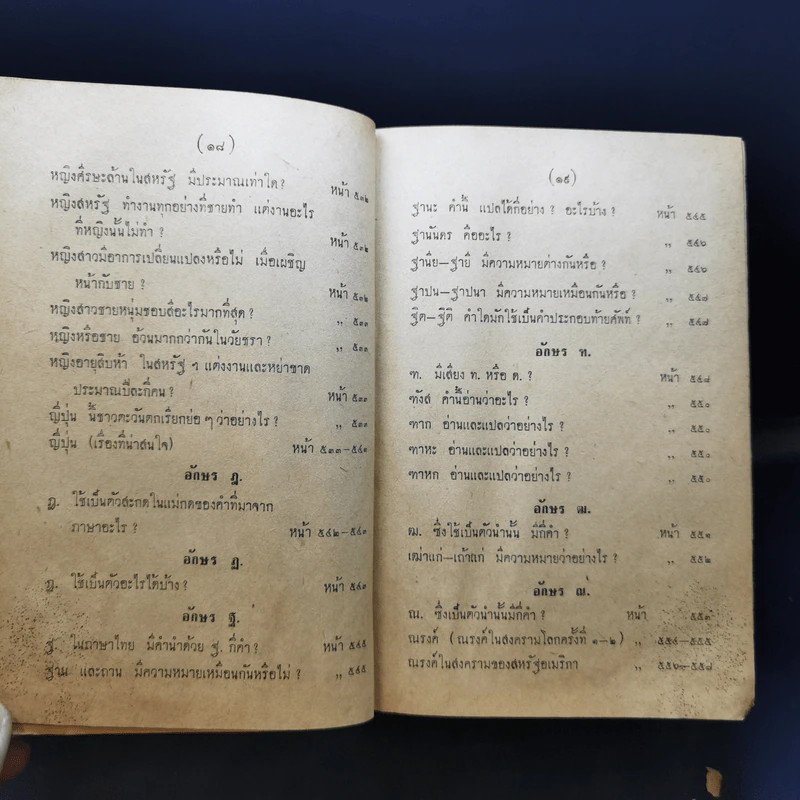 (๑๘)
หญิงศีรษะล้านในสหรัฐ มีประมาณเท่าใด ? หน้า ๕๓๒
หญิงสหรัฐ ทำงานทุกอย่างที่ชายทำ แต่งานอะไร
ที่หญิงนั้นไม่ทำ ? หน้า ๕๓๒
หญิงสาวมีอาการเปลี่ยนแปลงหรือไม่ เมื่อเผชิญ
หน้ากับชาย ? หน้า ๕๓๒
หญิงสาวชายหนุ่มชอบสีอะไรมากที่สุด ? ,, ๕๓๓
หญิงหรือชาย อ้วนมากกว่ากันในวัยชรา ? ,, ๕๓๓
หญิงอายุสิบห้า ในสหรัฐ ฯ แต่งงานและหย่าขาด
ประมาณปีละกี่คน ? หน้า ๕๓๓
ญี่ปุ่น นี้ชาวตะวันตกเรียกย่อ ๆ ว่าอย่างไร ? ,, ๕๓๓
ญี่ปุ่น (เรื่องที่น่าสนใจ) หน้า ๕๓๓—๕๔๑
อักษร ฎ.
ฎ. ใช้เป็นตัวสะกดในแม่กดของคำที่มาจาก
ภาษาอะไร ? หน้า ๕๔๒—๕๔๓
อักษร ฏ.
ฏ. ใช้เป็นตัวอะไรได้บ้าง ? หน้า ๕๔๓
อักษร ฐ.
ฐ. ในภาษาไทย มีคำนำด้วย ฐ. กี่คำ ? หน้า ๕๔๕
ฐาน และถาน มีความหมายเหมือนกันหรือไม่ ? ,, ๕๔๕
(๑๙)
ฐานะ คำนี้ แปลได้กี่อย่าง ? อะไรบ้าง ? หน้า ๕๔๕
ฐานันดร คืออะไร ? ,, ๕๔๖
ฐานีย—ฐายี มีความหมายต่างกันหรือ ? ,, ๕๔๖
ฐาปน—ฐาปนา มีความหมายเหมือนกันหรือ ? ,, ๕๔๗
ฐิต—ฐิติ คำใดมักใช้เป็นคำประกอบท้ายศัพท์ ? ,, ๕๔๗
อักษร ฑ.
ฑ. มีเสียง ท. หรือ ด. ? หน้า ๕๔๘
ฑังส์ คำนี้อ่านว่าอะไร ? ,, ๕๕๐
ฑาก อ่านและแปลว่าอย่างไร ? ,, ๕๕๐
ฑาหะ อ่านและแปลว่าอย่างไร ? ,, ๕๕๐
ฑาหก อ่านและแปลว่าอย่างไร ? ,, ๕๕๐
อักษร ฒ.
ฒ. ซึ่งใช้เป็นตัวนำนั้น มีกี่คำ ? หน้า ๕๕๑
เฒ่าแก่—เถ้าแก่ มีความหมายว่าอย่างไร ? ,, ๕๕๒
อักษร ณ.
ณ. ซึ่งเป็นตัวนำนั้นมีกี่คำ ? หน้า ๕๕๓
ณรงค์ (ณรงค์ในสงครามโลกครั้งที่ ๑—๒) ,, ๕๕๔—๕๕๕
ณรงค์ในสงครามของสหรัฐอเมริกา ,, ๕๕๖—๕๕๘